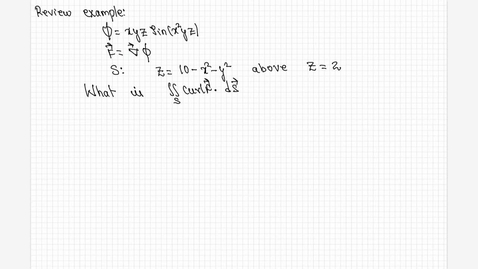 Review example:
ϕ = xyz Sin(x²yz)
F⃗ = ∇⃗ ϕ
S: z = 10 - x² - y² above z = 2
What is ∬_S curl F⃗ . dS⃗